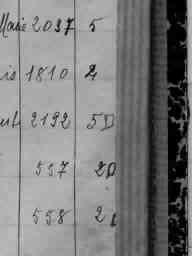 Marie 2037 5
is 1810 2
ut 2192 5D
557 2D
558 2